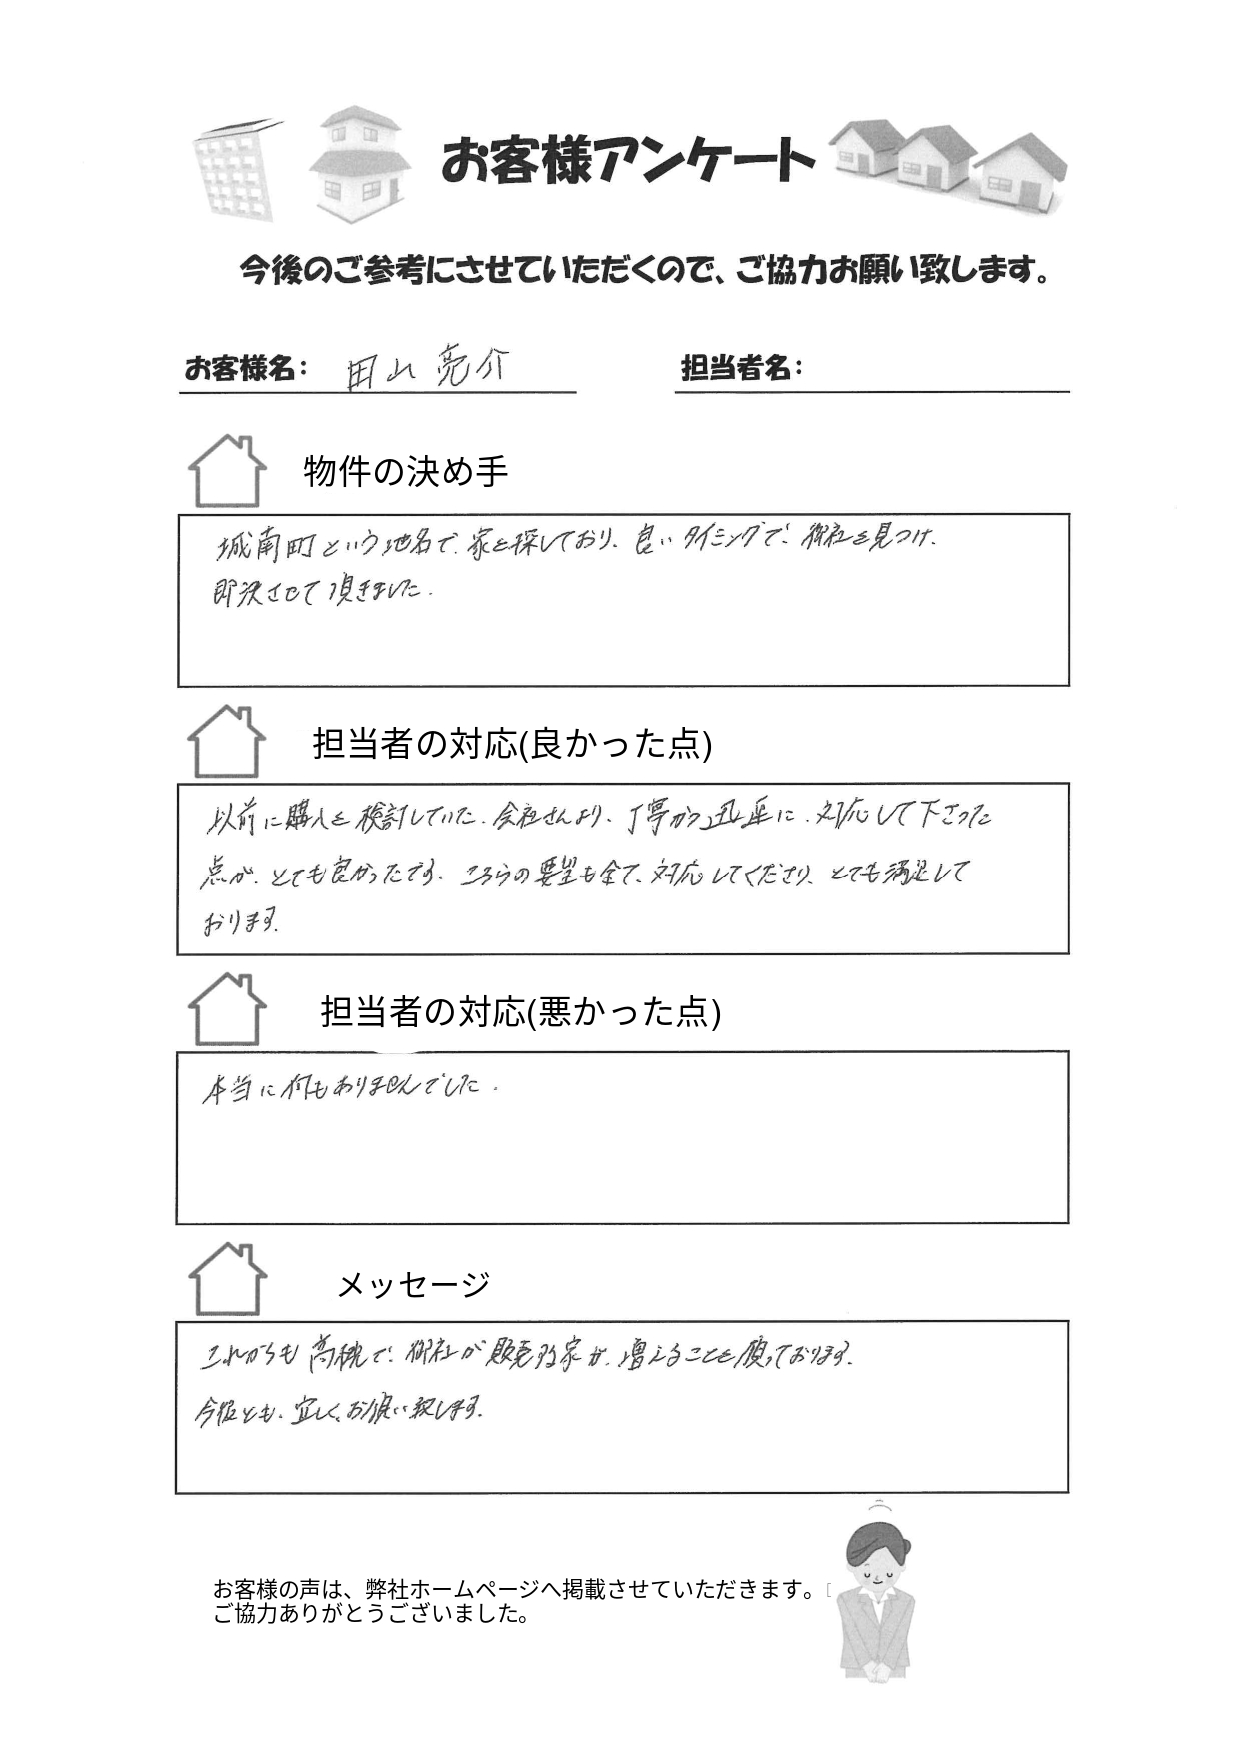 お客様アンケート
今後のご参考にさせていただくので、ご協力お願い致します。
お客様名: 田山 亮介
担当者名:
物件の決め手
城南町という地名で、家を探しており、良いタイミングで、御社を見つけ、
即決させて頂きました.
担当者の対応(良かった点)
以前に購入を検討していた、会社さんより、丁寧かつ迅速に、対応して下さった
点が、とても良かったです、こちらの要望も全て、対応してくださり、とても満足して
おります.
担当者の対応(悪かった点)
本当に何もありませんでした.
メッセージ
これからも 御社が販売 家が、増えることを願っております.
今後とも、宜しくお願い致します.
お客様の声は、弊社ホームページへ掲載させていただきます。
ご協力ありがとうございました。